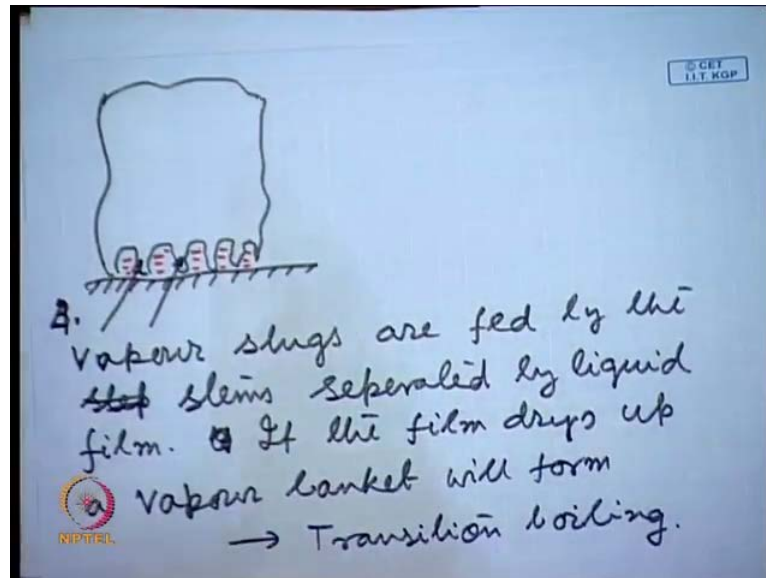 © CET
I.I.T. KGP
2.
Vapour slugs are fed by the
stems seperated by liquid
film. If the film drys up
a vapour banket will form
→ Transition boiling.
NPTEL